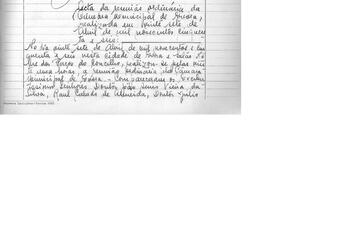 Acta da reunião ordinária da
Câmara Municipal de Évora,
realizada em vinte sete de
Abril de mil novecentos e cinquen
ta e seis:
No dia vinte sete de Abril de mil novecentos e cin
quenta e seis nesta cidade de Évora e salão no
bre dos Paços do Concelho, realizou-se pelas
horas, a reunião ordinária da Câmara
Municipal de Évora - Compareceram os Excelen
tíssimos Senhores Doutor João Luís Vieira da
Silva, Raul de Almeida, Doutor Júlio